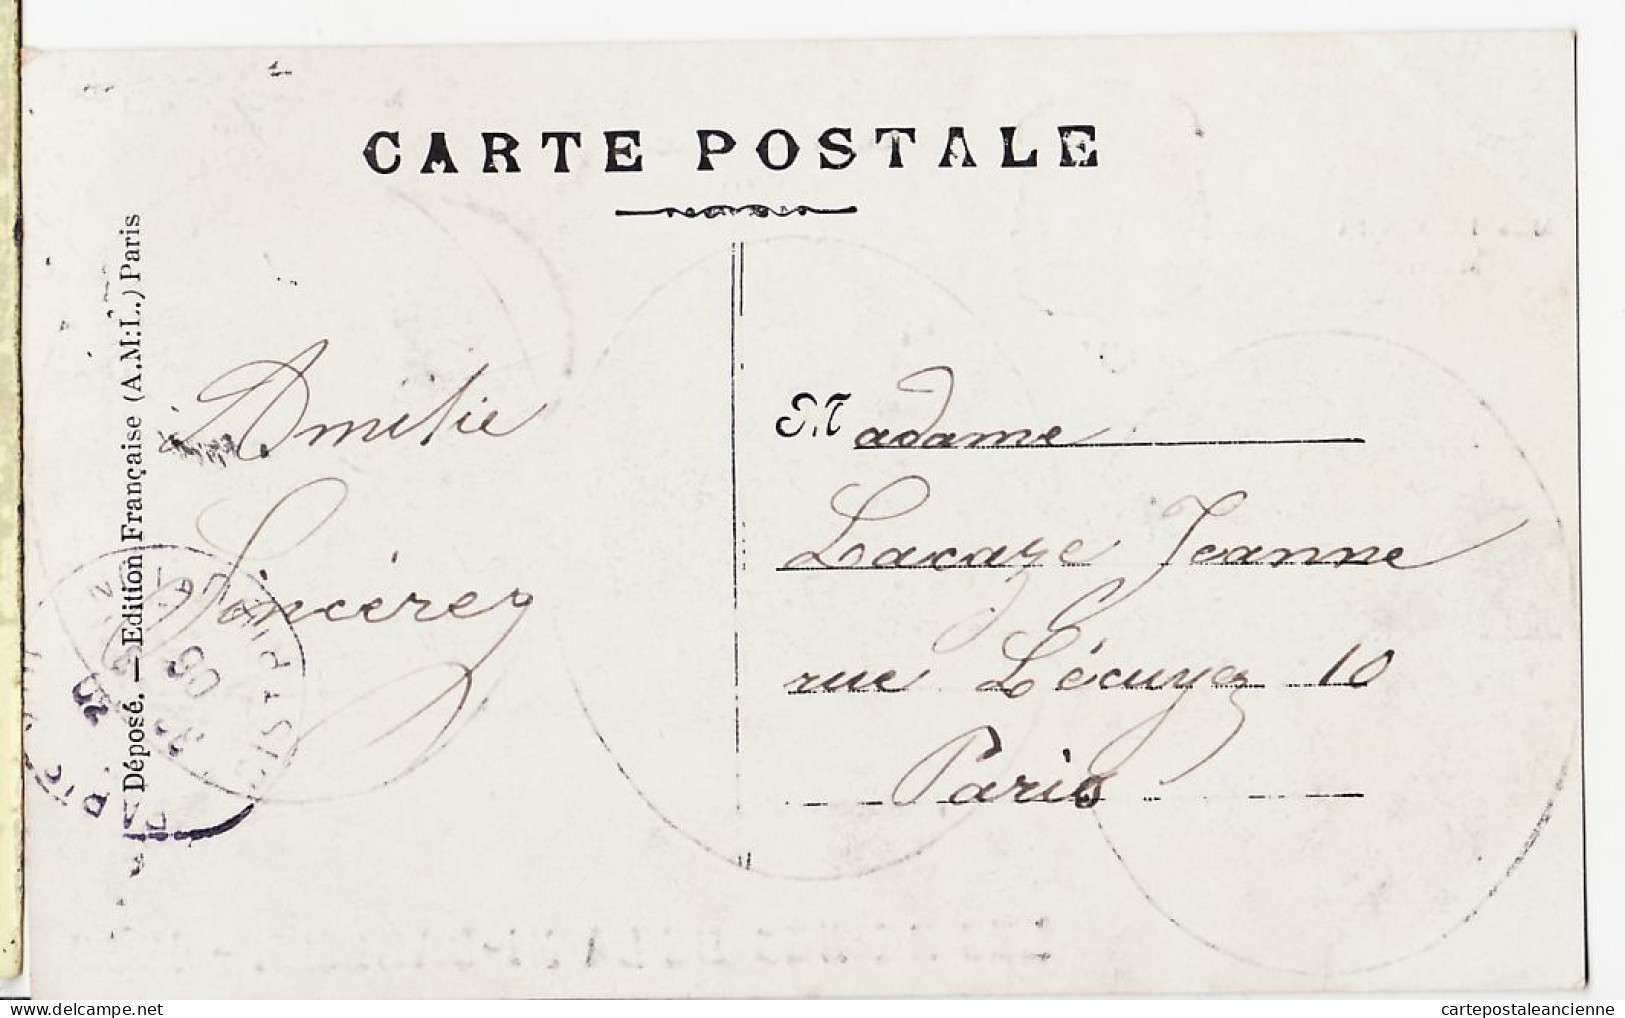 CARTE POSTALE
Déposé. — Edition Française (A.M.L.) Paris
Amelie
Sincérez
Madame
Lacaze Jeanne
rue Lécuyez 10
Paris
cartepostaleancienne